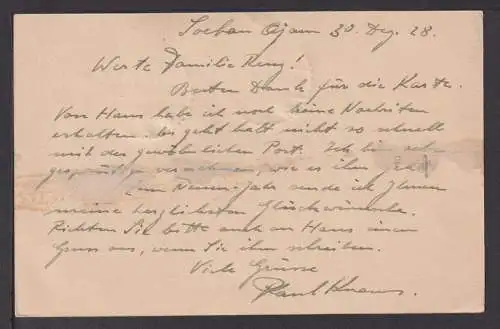 30. Dez. 28.
Werte Familie Renz!
Besten Dank für die Karte.
Von Hans habe ich noch keine Nachrichten
erhalten. Es geht halt nicht so schnell
mit der gewöhnlichen Post. Ich bin sehr
zu vernehmen, wie es ihm geht
Zum Neuen-Jahr sende ich Ihnen
meine herzlichsten Glückwünsche.
Richten Sie bitte auch an Hans einen
Gruss aus, wenn Sie ihm schreiben.
Viele Grüsse
Paul